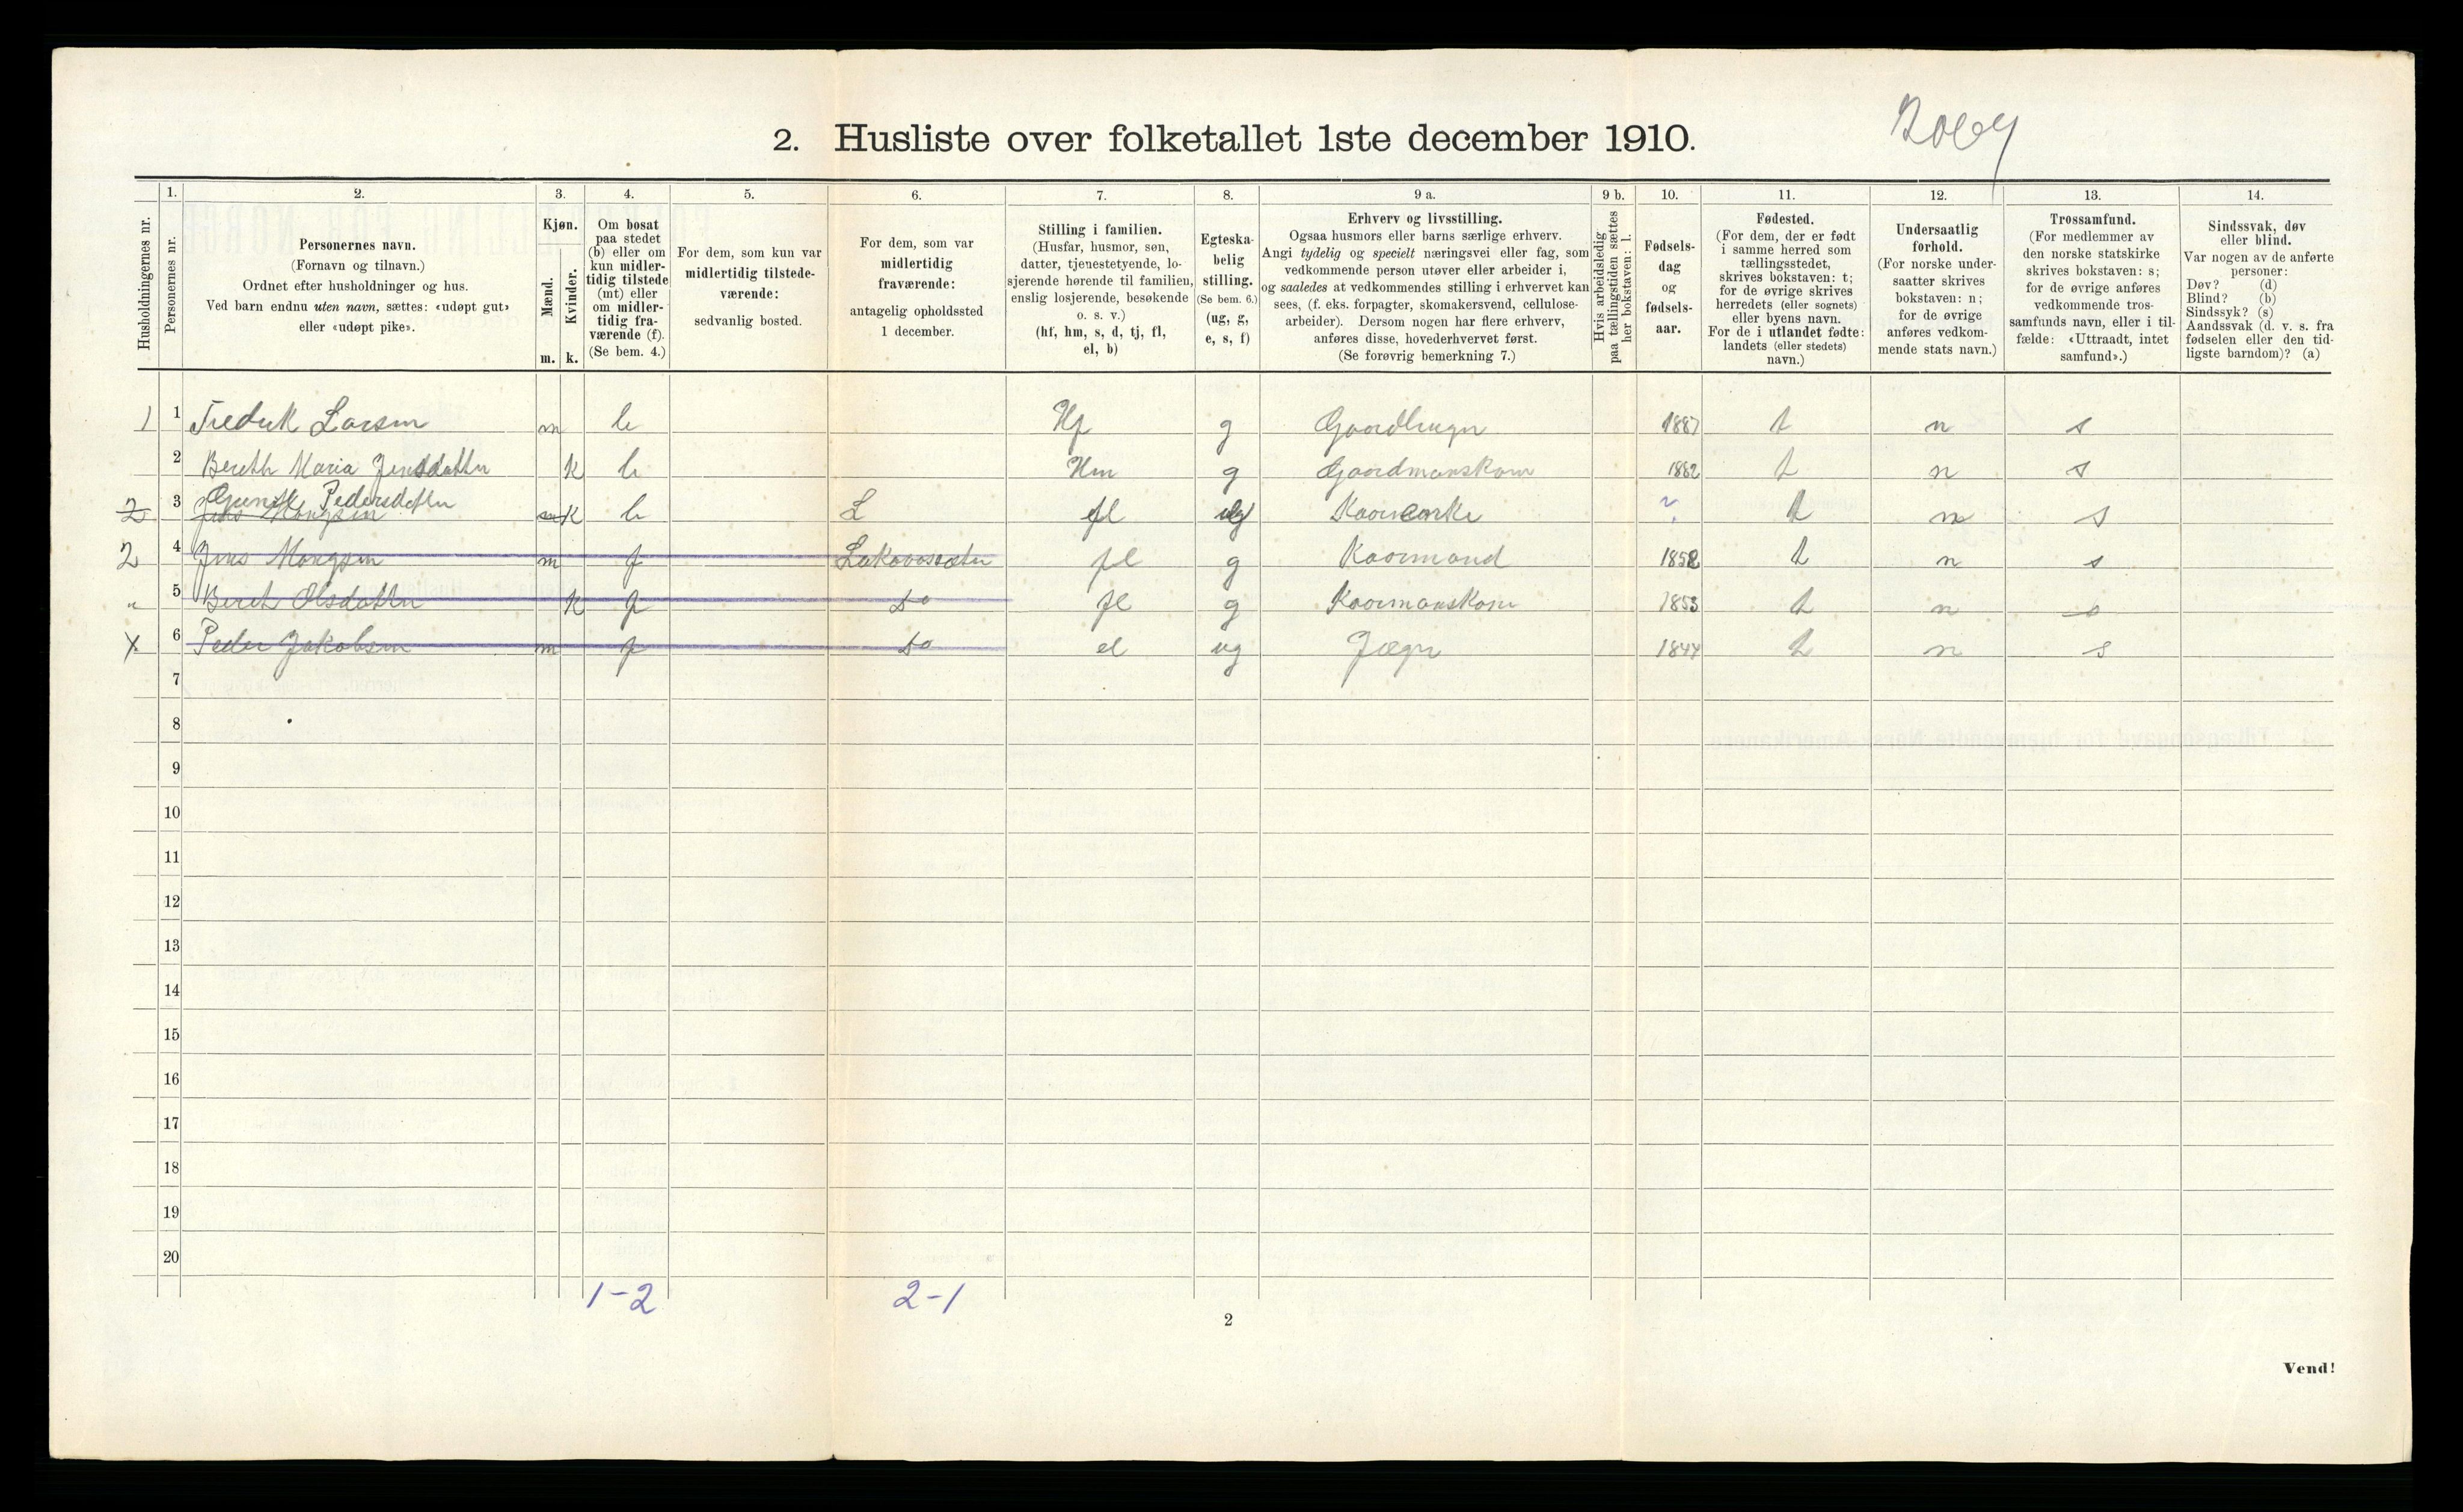 2. Husliste over folketallet 1ste december 1910.
Husholdningernes nr.
1. Personernes nr.
2. Personernes navn.
(Fornavn og tilnavn.)
Ordnet efter husholdninger og hus.
Ved barn endnu uten navn, sættes: «udøpt gut»
eller «udøpt pike».
3. Kjøn.
Mænd. Kvinder.
m. k.
4. Om bosat
paa stedet
(b) eller om
kun midler-
tidig tilstede
(mt) eller
om midler-
tidig fra-
værende (f).
(Se bem. 4.)
5. For dem, som kun var
midlertidig tilstede-
værende:
sedvanlig bosted.
6. For dem, som var
midlertidig
fraværende:
antagelig opholdssted
1 december.
7. Stilling i familien.
(Husfar, husmor, søn,
datter, tjenestetyende, lo-
sjerende hørende til familien,
enslig losjerende, besøkende
o. s. v.)
(hf, hm, s, d, tj, fl,
el, b)
8. Egteska-
belig
stilling.
(Se bem. 6.)
(ug, g,
e, s, f)
9 a. Erhverv og livsstilling.
Ogsaa husmors eller barns særlige erhverv.
Angi tydelig og specielt næringsvei eller fag, som
vedkommende person utøver eller arbeider i,
og saaledes at vedkommendes stilling i erhvervet kan
sees, (f. eks. forpagter, skomakersvend, cellulose-
arbeider). Dersom nogen har flere erhverv,
anføres disse, hovederhvervet først.
(Se forøvrig bemerkning 7.)
9 b. Hvis arbeidsledig
paa tællingstiden sættes
her bokstaven: l.
10. Fødsels-
dag
og
fødsels-
aar.
11. Fødested.
(For dem, der er født
i samme herred som
tællingsstedet,
skrives bokstaven: t;
for de øvrige skrives
herredets (eller sognets)
eller byens navn.
For de i utlandet fødte:
landets (eller stedets)
navn.)
12. Undersaatlig
forhold.
(For norske under-
saatter skrives
bokstaven: n;
for de øvrige
anføres vedkom-
mende stats navn.)
13. Trossamfund.
(For medlemmer av
den norske statskirke
skrives bokstaven: s;
for de øvrige anføres
vedkommende tros-
samfunds navn, eller i til-
fælde: «Uttraadt, intet
samfund».)
14. Sindssvak, døv
eller blind.
Var nogen av de anførte
personer:
Døv? (d)
Blind? (b)
Sindssyk? (s)
Aandssvak (d. v. s. fra
fødselen eller den tid-
ligste barndom)? (a)
1 1 Fredrik Larsen m b Hf g Gaardbruger 1887 t n s
2 Bereth Maria Jensdatter k b Hm g Gaardmanskone 1882 t n s
2 3 Jens Mongsen Pedersdatter m K b L fl Kaarenke ? t n s
2 4 Jens Mongsen m f fl g Kaarmand 1852 t n s
" 5 Beret Olsdatter k f do fl g Kaarmanskone 1853 t n s
x 6 Peder Jakobsen m f do el ug Jæger 1844 t n s
7
8
9
10
11
12
13
14
15
16
17
18
19
20
1-2 2-1
2
Vend!